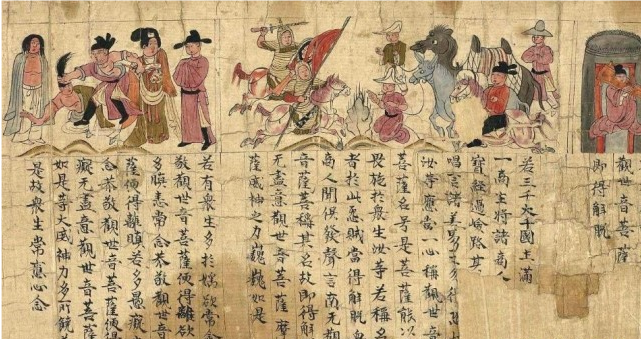 觀世音菩薩
即得解脫
若三千大千國土滿
一商主將諸商人
寶經過嶮路其
唱言諸善男子勿得
汝等應當一心稱觀世音
菩薩名号是菩薩能以
畏施於衆生汝等若稱名
者於此怨賊當得解脫
商人聞俱發聲言南无觀
音菩薩稱其名故即得解
无盡意觀世音菩薩摩
薩威神之力巍巍如是
若有衆生多於婬欲常念
敬觀世音菩薩便得離欲
多瞋恚常念恭敬觀世音
薩便得離瞋若多愚癡
念恭敬觀世音菩薩便得
癡无盡意觀世音菩薩
如是等大威神力多所饒
是故衆生常應心念